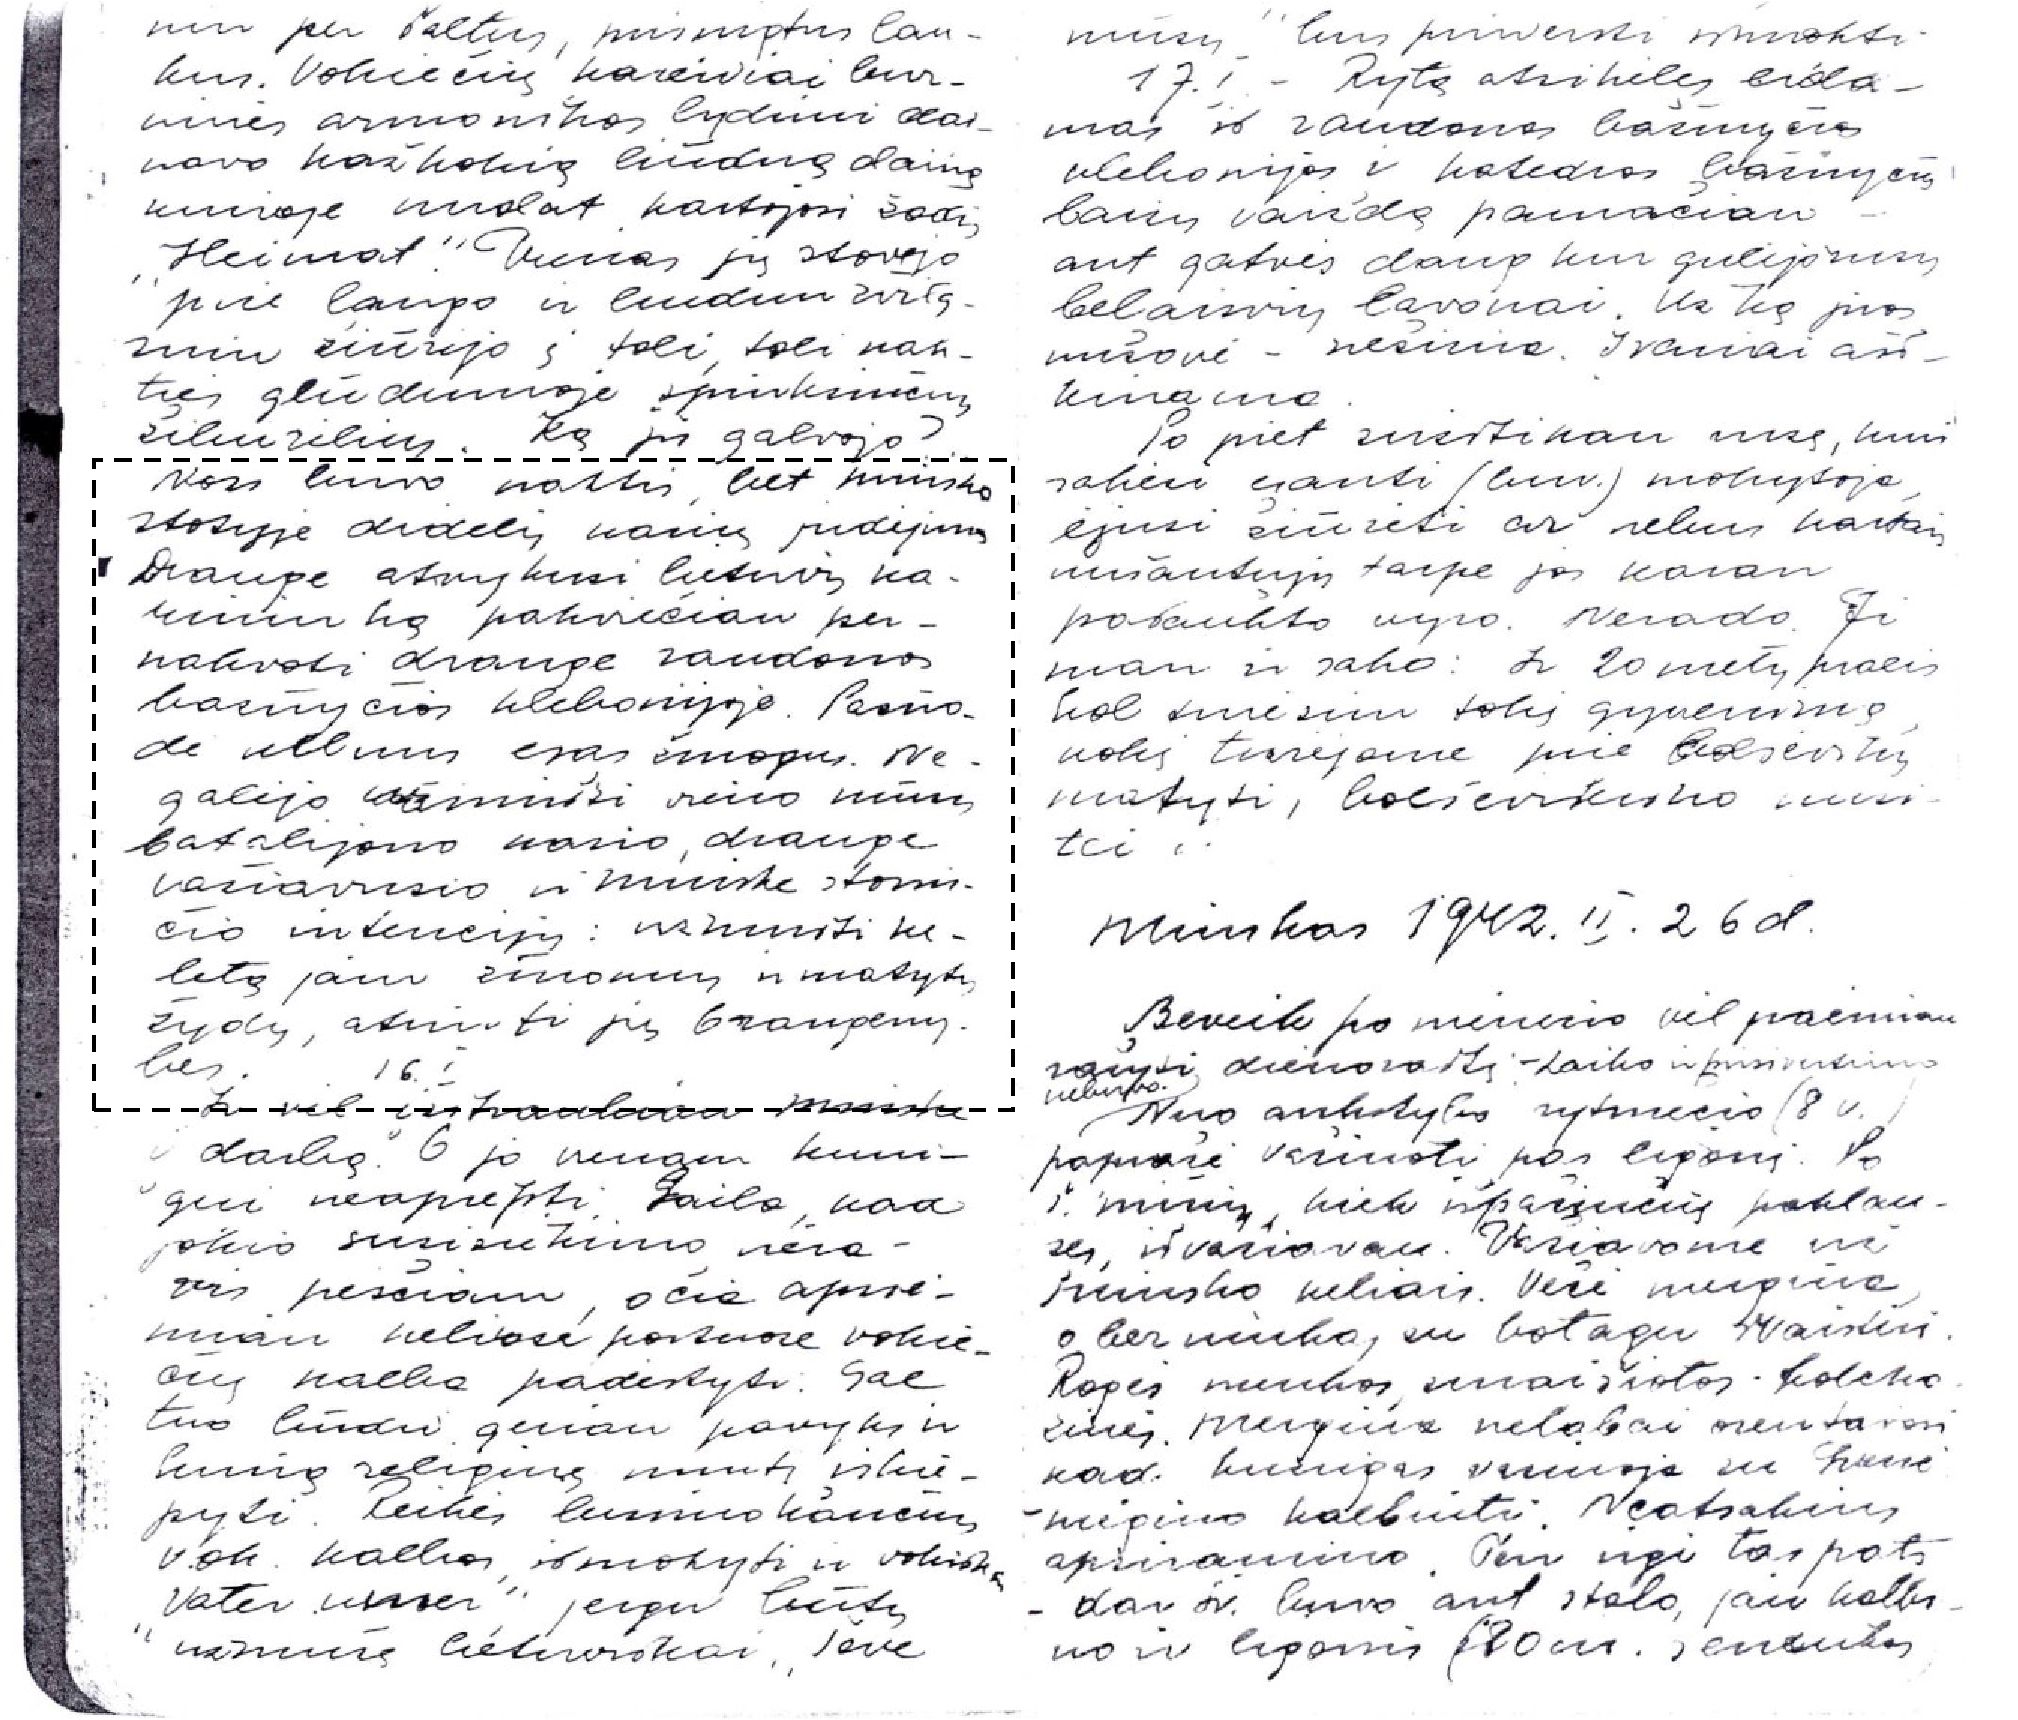 nin per šaltus, prisnigtus lau-
kus. Vokiečių kareiviai bur-
ninės armonikos lydimi dai-
navo kažkokią liūdną dainą
kurioje nuolat kartojosi žodis
"Heimat". Vienas jų stovėjo
prie lango ir liudnu žvilg-
sniu žiūrėjo į toli, toli nak-
ties glūdumoje spinksinčių
žiburėlius. Ką jis galvojo?
Nors buvo naktis, bet Minsko
stotyje didelis karių judėjimas
Drauge atvykusi lietuvį ka-
rininką pakviečiau per-
nakvoti drauge raudonos
bažnyčios klebonijoje. Pasiro-
dė kilnus esąs žmogus. Ne-
galijo užmiršti vieno mūsų
batalijono kario, drauge
važiavusio ir Minske stovin-
čio intencijų: užmušti ke-
letą jam žinomų ir matytų
žydų, atimti jų brangeny-
bes. 16.I
Ir vėl ištraukiau Minske
darbą. O jo vienam kuni-
gui neaprėpti. Gaila, kad
jokio susisiekimo nėra -
vis pesčiam, o čia apsiė-
miau keliose postuose vokie-
čių kalba padėstyti. Gal
tuo būdu geriau pavyks ir
kunią religinę mintį iškė-
pyti. Reikės besimokančius
vok. kalbos, išmokyti ir vokiška
"Vater unser" jeigu būtų
užmiršę lietuviškai "Tėve
mūsų" bus priversti išmokti.
17.I - Rytą atsikėlęs eida-
mas iš raudonos bažnyčios
klebonijos į katedros bažnyčią
baisų vaizdą pamačiau -
ant gatvės daug kur gulėjo rusų
belaisvių lavonai. Už ką juos
nušovė - nežinia. Įvairiai aiš-
kinama.
Po piet susitikau rusę, kuri
sakėsi esanti (buv.) mokytoja,
ėjusi žiūrėti ar nebus kartais
nušautųjų tarpe jos karan
pašaukto vyro. Nerado. Ji
man ir sako: Ir 20 metų praeis
kol turėsim tokį gyvenimą,
kokį turėjome prie bolševikų
matyti, bolševikiško nusi-
tei..
Minskas 1942.II.26 d.
Beveik po mėnesio vėl paėmiau
rašyti dienoraštį - Laiko ir prisivertimo
nebuvo.
Nuo ankstybo rytmečio (8 v.)
paprašė važiuoti pas ligonį. Po
š. mišių, kiek išpažinčių paklau-
sęs, išvažiavau. Važiavome už
Minsko keliais. Vežė mergina
o berniukas su botagu švaistėsi.
Rogės menkos, sunaišiotos. Kolcho-
zinės. Mergina nelabai orientavosi
kad. kunigas važiuoja su Šven.
mėgino kalbinti. Neatsakius
apsiramino. Ten irgi tas pats
- dar šv. buvo ant stalo, jau kalbi-
no ir ligonis (80 m. senutė